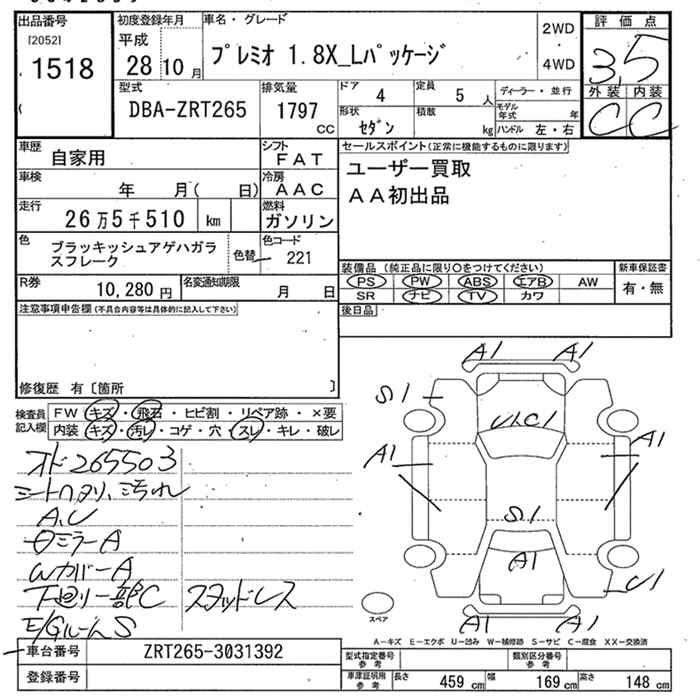 出品番号
[2052]
1518
初度登録年月
平成
28 10 月
車名・グレード
プレミオ 1.8X_Lパッケージ
2WD
・
4WD
評価点
3.5
外装 内装
C C
型式
DBA-ZRT265
排気量
1797
cc
ドア 4
定員 5 人
ディーラー・並行
モデル年式 年
形状 セダン
積載 kg
ハンドル 左・右
車歴
自家用
シフト
FAT
車検
年 月( 日)
冷房
AAC
走行
26万5千510 km
燃料
ガソリン
色
ブラッキッシュアゲハガラスフレーク
色替
色コード
221
R券
10,280 円
名変通知期限
月 日
セールスポイント(正常に機能するものに限ります)
ユーザー買取
AA初出品
装備品 (純正品に限り○をつけてください)
PS PW ABS エアB AW
SR ナビ TV カワ
新車保証書
有・無
後日品
注意事項申告欄 (不具合内容等は具体的に記入して下さい)
修復歴 有〔箇所 〕
検査員
記入欄
FW キズ・飛石・ヒビ割・リペア跡・×要
内装 キズ・汚レ・コゲ・穴・スレ・キレ・破レ
オド265503
シートヘタリ、汚れ
A,U
ミラーA
WカバーA
下廻り一部C
スタッドレス
E/GルームS
A1 A1
S1
U1C1
A1 A1
S1
A1
U1
A1 A1
スペア
A-キズ E-エクボ U-凹み W-補修跡 S-サビ C-腐食 XX-交換済
車台番号
ZRT265-3031392
登録番号
型式指定番号
参考
類別区分番号
参考
車庫証明用
参考
長さ 459 cm
幅 169 cm
高さ 148 cm